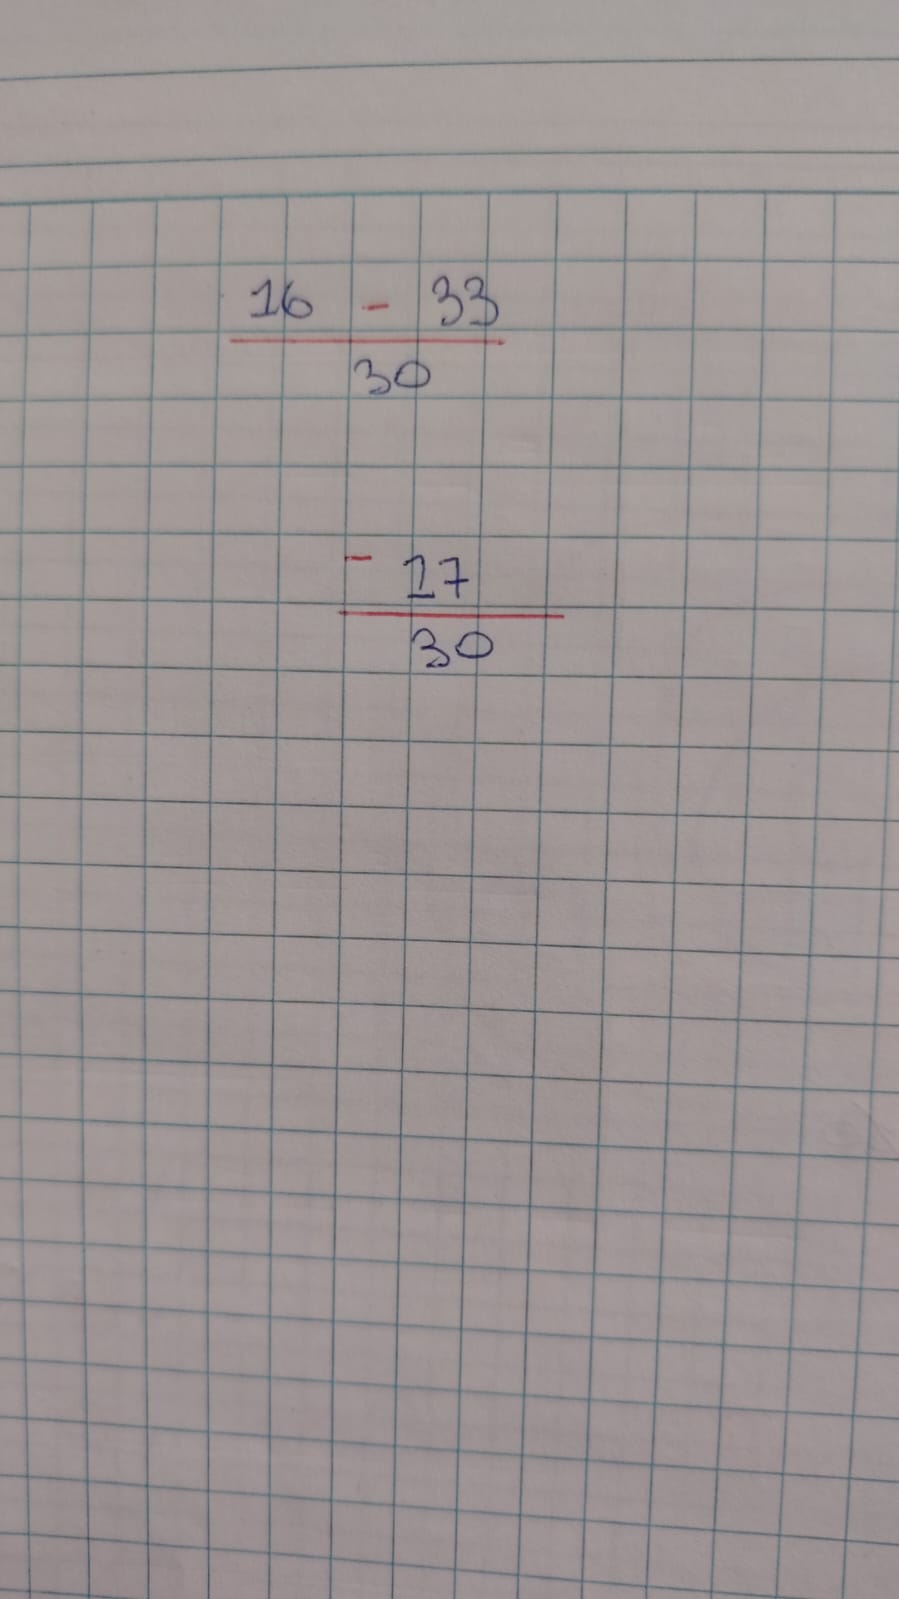 16 - 33
30
- 17
30